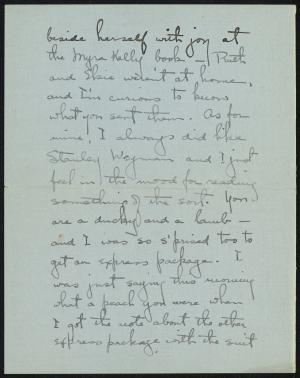 beside herself with joy at
the Myra Kelly book — Ruth
and Elsie weren't at home,
and I'm curious to know
what you sent them. As for
mine, I always did like
Stanley Weyman and I just
feel in the mood for reading
something of the sort. You
are a ducky and a lamb —
and I was so s'prised too to
get an express package. I
was just saying this morning
what a peach you were when
I got the note about the other
express package with the suit